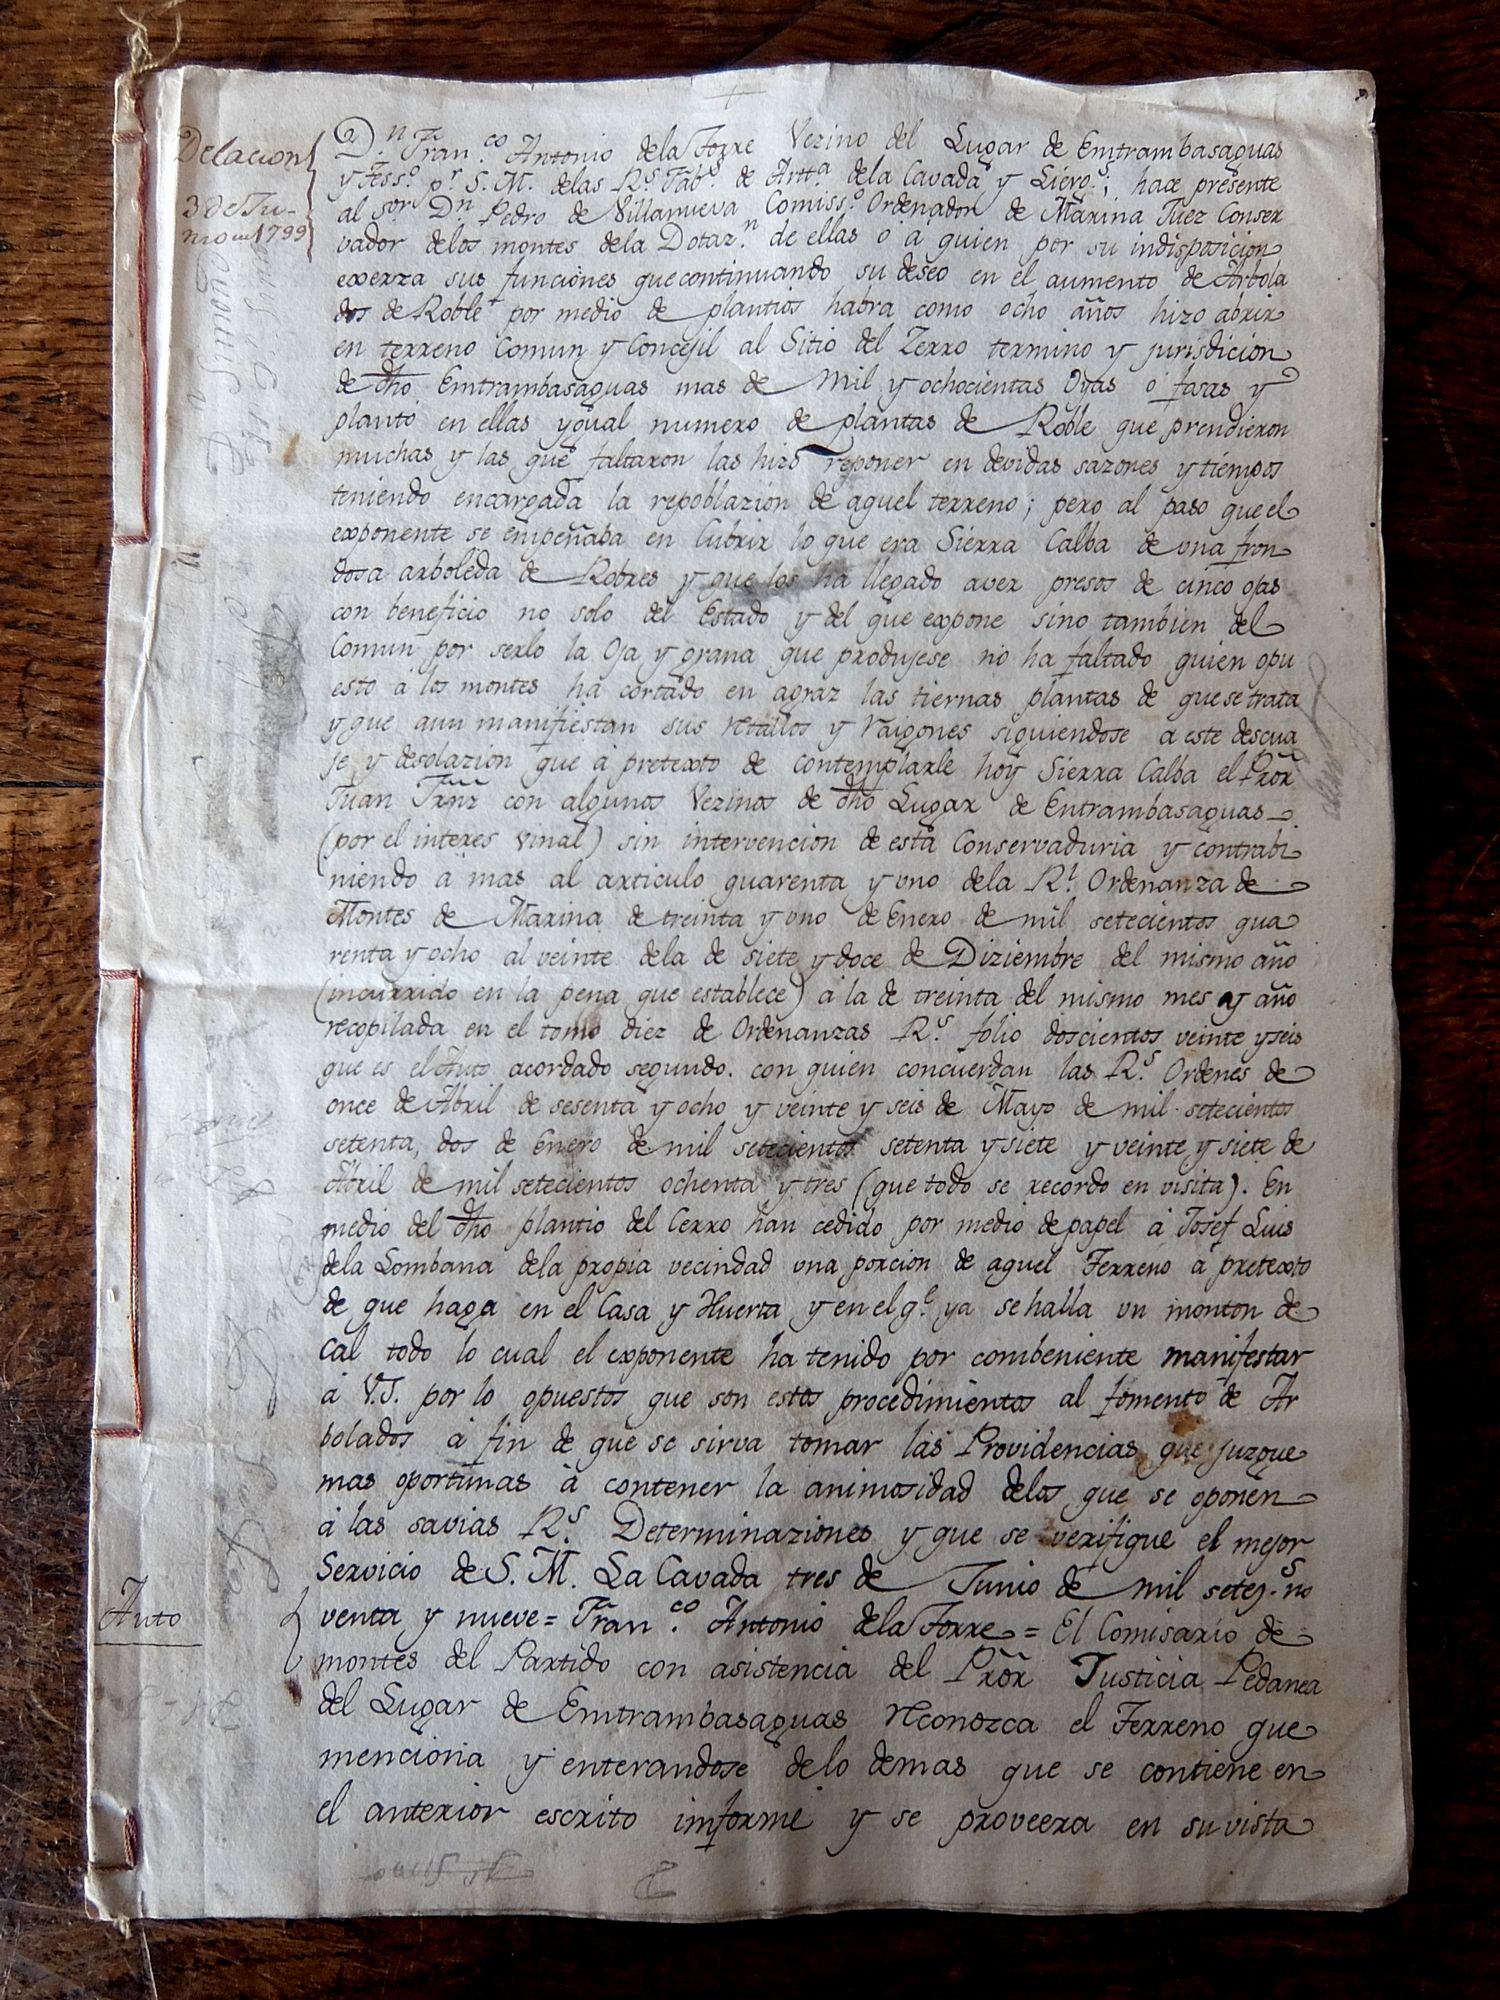 Delacion
3 de Ju-
nio de 1799
D.n Fran.co Antonio dela Torre Vezino del Lugar de Emtrambasaguas
y Tess.o p.r S. M. delas R.s Fab.s de Artt.a dela Cavada y Lierg.s; hace presente
al S.or D.n Pedro de Villanueva Comiss.o Ordenador de Marina Juez Conser
vador delos montes dela Dotaz.n de ellas o a quien por su indisposicion
exerza sus funciones que continuando su deseo en el aumento de Arbola
dos de Roble por medio de plantios habra como ocho años hizo abrir
en terreno Comun y Concejil al Sitio del Zerro termino y jurisdicion
de dho Emtrambasaguas mas de Mil y ochocientas Oyas o fosas y
planto en ellas ygual numero de plantas de Roble que prendieron
muchas y las que faltaron las hizo reponer en devidas sazones y tiempos
teniendo encargada la repoblazion de aquel terreno; pero al paso que el
exponente se empeñaba en Cubrir lo que era Sierra Calba de una fron
dosa arboleda de Robres y que los ha llegado aver presos de cinco ojas
con beneficio no solo del Estado y del que expone sino tambien del
Comun por serlo la Oja y grana que produjese no ha faltado quien opu
esto à los montes ha cortado en agraz las tiernas plantas de que se trata
y que aun manifiestan sus retallos y Raigones siguiendose a este descua
je y desolazion que à pretexto de contemplarle hoy Sierra Calba el Pror
Juan Frnz con algunos Vezinos de dho Lugar de Entrambasaguas
(por el interes vinal) sin intervencion de esta Conservaduria y contrabi
niendo à mas al articulo quarenta y uno dela R.l Ordenanza de
Montes de Marina de treinta y uno de Enero de mil setecientos qua
renta y ocho al veinte dela de siete y doce de Diziembre del mismo año
(incurrido en la pena que establece) à la de treinta del mismo mes y año
recopilada en el tomo diez de Ordenanzas R.s folio doscientos veinte y seis
que es el Auto acordado segundo. con quien concuerdan las R.s Ordenes de
once de Abril de sesenta y ocho y veinte y seis de Mayo de mil setecientos
setenta, dos de Enero de mil setecientos setenta y siete y veinte y siete de
Abril de mil setecientos ochenta y tres (que todo se recordo en visita). En
medio del dho plantio del Cerro han cedido por medio de papel à Josef Luis
dela Lombana dela propia vecindad una porcion de aquel Terreno à pretexto
de que haga en el Casa y Huerta y en el q.e ya se halla un monton de
cal todo lo cual el exponente ha tenido por combeniente manifestar
à V.S. por lo opuestos que son estos procedimientos al fomento de Ar
bolados à fin de que se sirva tomar las Providencias que juzgue
mas oportunas à contener la animosidad delos que se oponen
à las savias R.s Determinaziones y que se verifique el mejor
Servicio de S. M. La Cavada tres de Junio de mil setez.s no
venta y nueve = Fran.co Antonio dela Torre = El Comisario de
Auto
montes del Partido con asistencia del Pror Justicia Pedanea
del Lugar de Emtrambasaguas reconozca el Terreno que
menciona y enterandose delo demas que se contiene en
el anterior escrito informe y se proveera en su vista